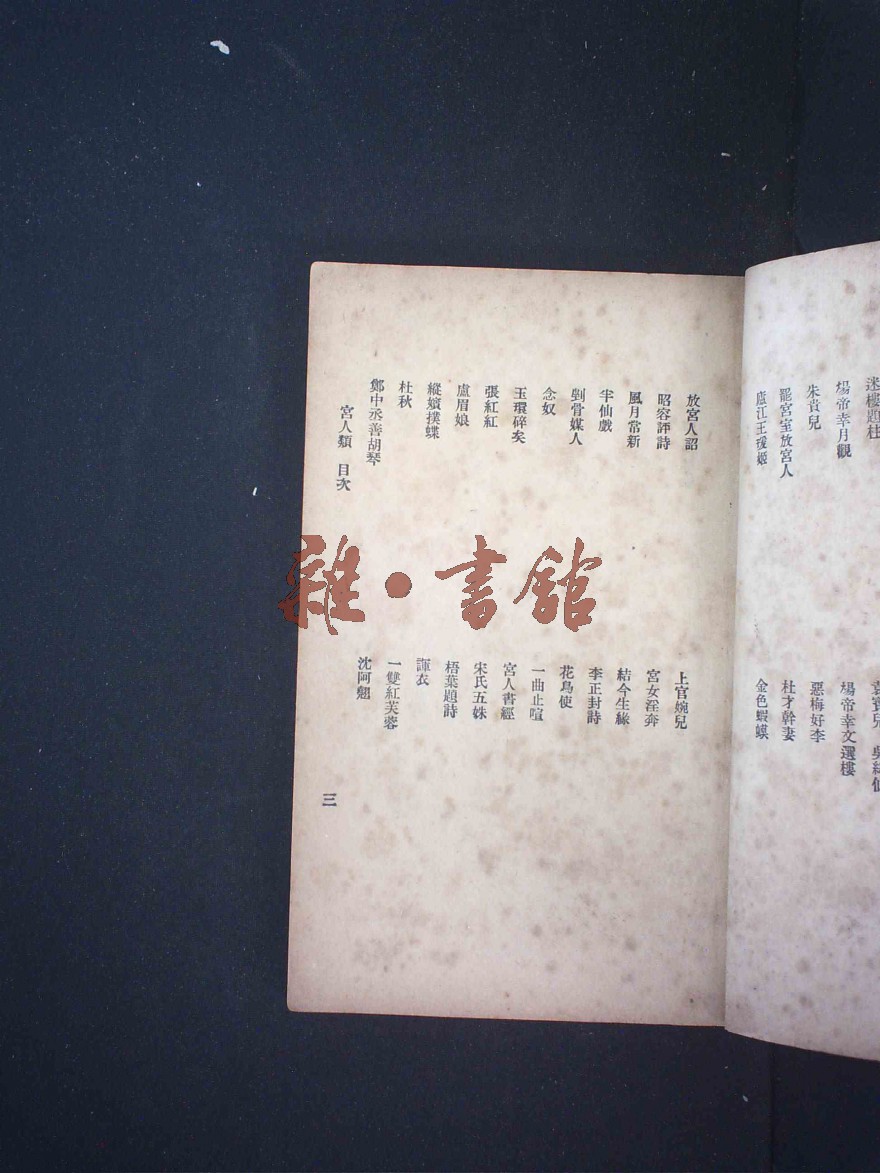 迷樓題柱
袁寶兒 吳絳仙
煬帝幸月觀
煬帝幸文選樓
朱貴兒
惡梅好李
罷宮室放宮人
杜才幹妻
廬江王瑗姬
金色蝦蟆
放宮人詔
上官婉兒
昭容評詩
宮女淫奔
風月常新
結今生緣
半仙戲
李正封詩
剉骨媒人
花鳥使
念奴
一曲止喧
玉環碎矣
宮人書經
張紅紅
宋氏五姝
盧眉娘
梧葉題詩
縱嬪撲蝶
諢衣
杜秋
一雙紅芙蓉
鄭中丞善胡琴
沈阿翹
宮人類 目次
三
雜·書館